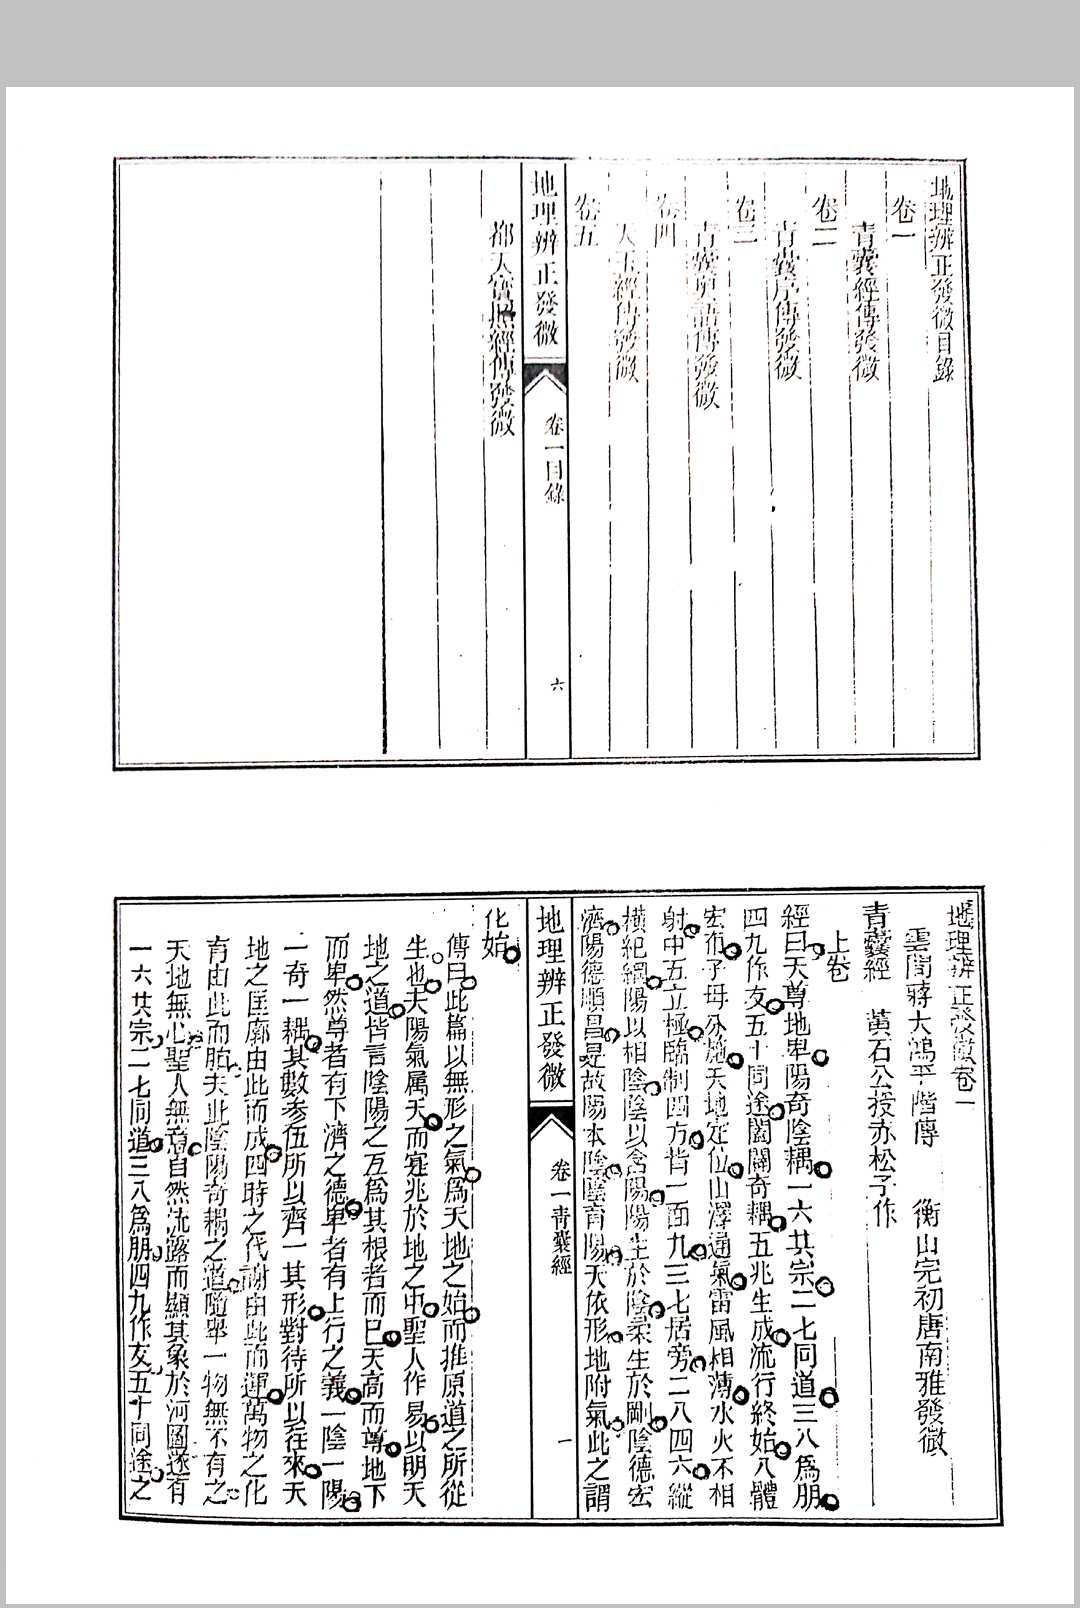 地理辨正發微目錄
卷一
青囊經傳發微
卷二
青囊序傳發微
卷三
青囊奧語傳發微
卷四
天玉經傳發微
卷五
地理辨正發微
卷一目錄
六
都天寶照經傳發微
地理辨正發微卷一
雲間蔣大鴻平階傳 衡山完初唐南雅發微
青囊經 黃石公授赤松子作
上卷
經曰天尊地卑陽奇陰耦一六共宗二七同道三八爲朋
四九作友五十同途闔闢奇耦五兆生成流行終始八體
宏布子母分施天地定位山澤通氣雷風相薄水火不相
射中五立極臨制四方背一面九三七居旁二八四六縱
橫紀綱陽以相陰陰以含陽陽生於陰柔生於剛陰德宏
濟陽德順昌是故陽本陰陰育陽天依形地附氣此之謂
地理辨正發微
卷一青囊經
一
化始
傳曰此篇以無形之氣爲天地之始而推原道之所從
生也夫陽氣属天而寔兆於地之中聖人作易以明天
地之道皆言陰陽之互爲其根者而巳天高而尊地下
而卑然尊者有下濟之德卑者有上行之義一陰一陽
一奇一耦其數參伍所以齊一其形對待所以往來天
地之匡廓由此而成四時之代謝由此而運萬物之化
育由此而胎夫此陰陽奇耦之道隨舉一物無不有之
天地無心聖人無意自然流露而顯其象於河圖遂有
一六共宗二七同道三八爲朋四九作友五十同途之